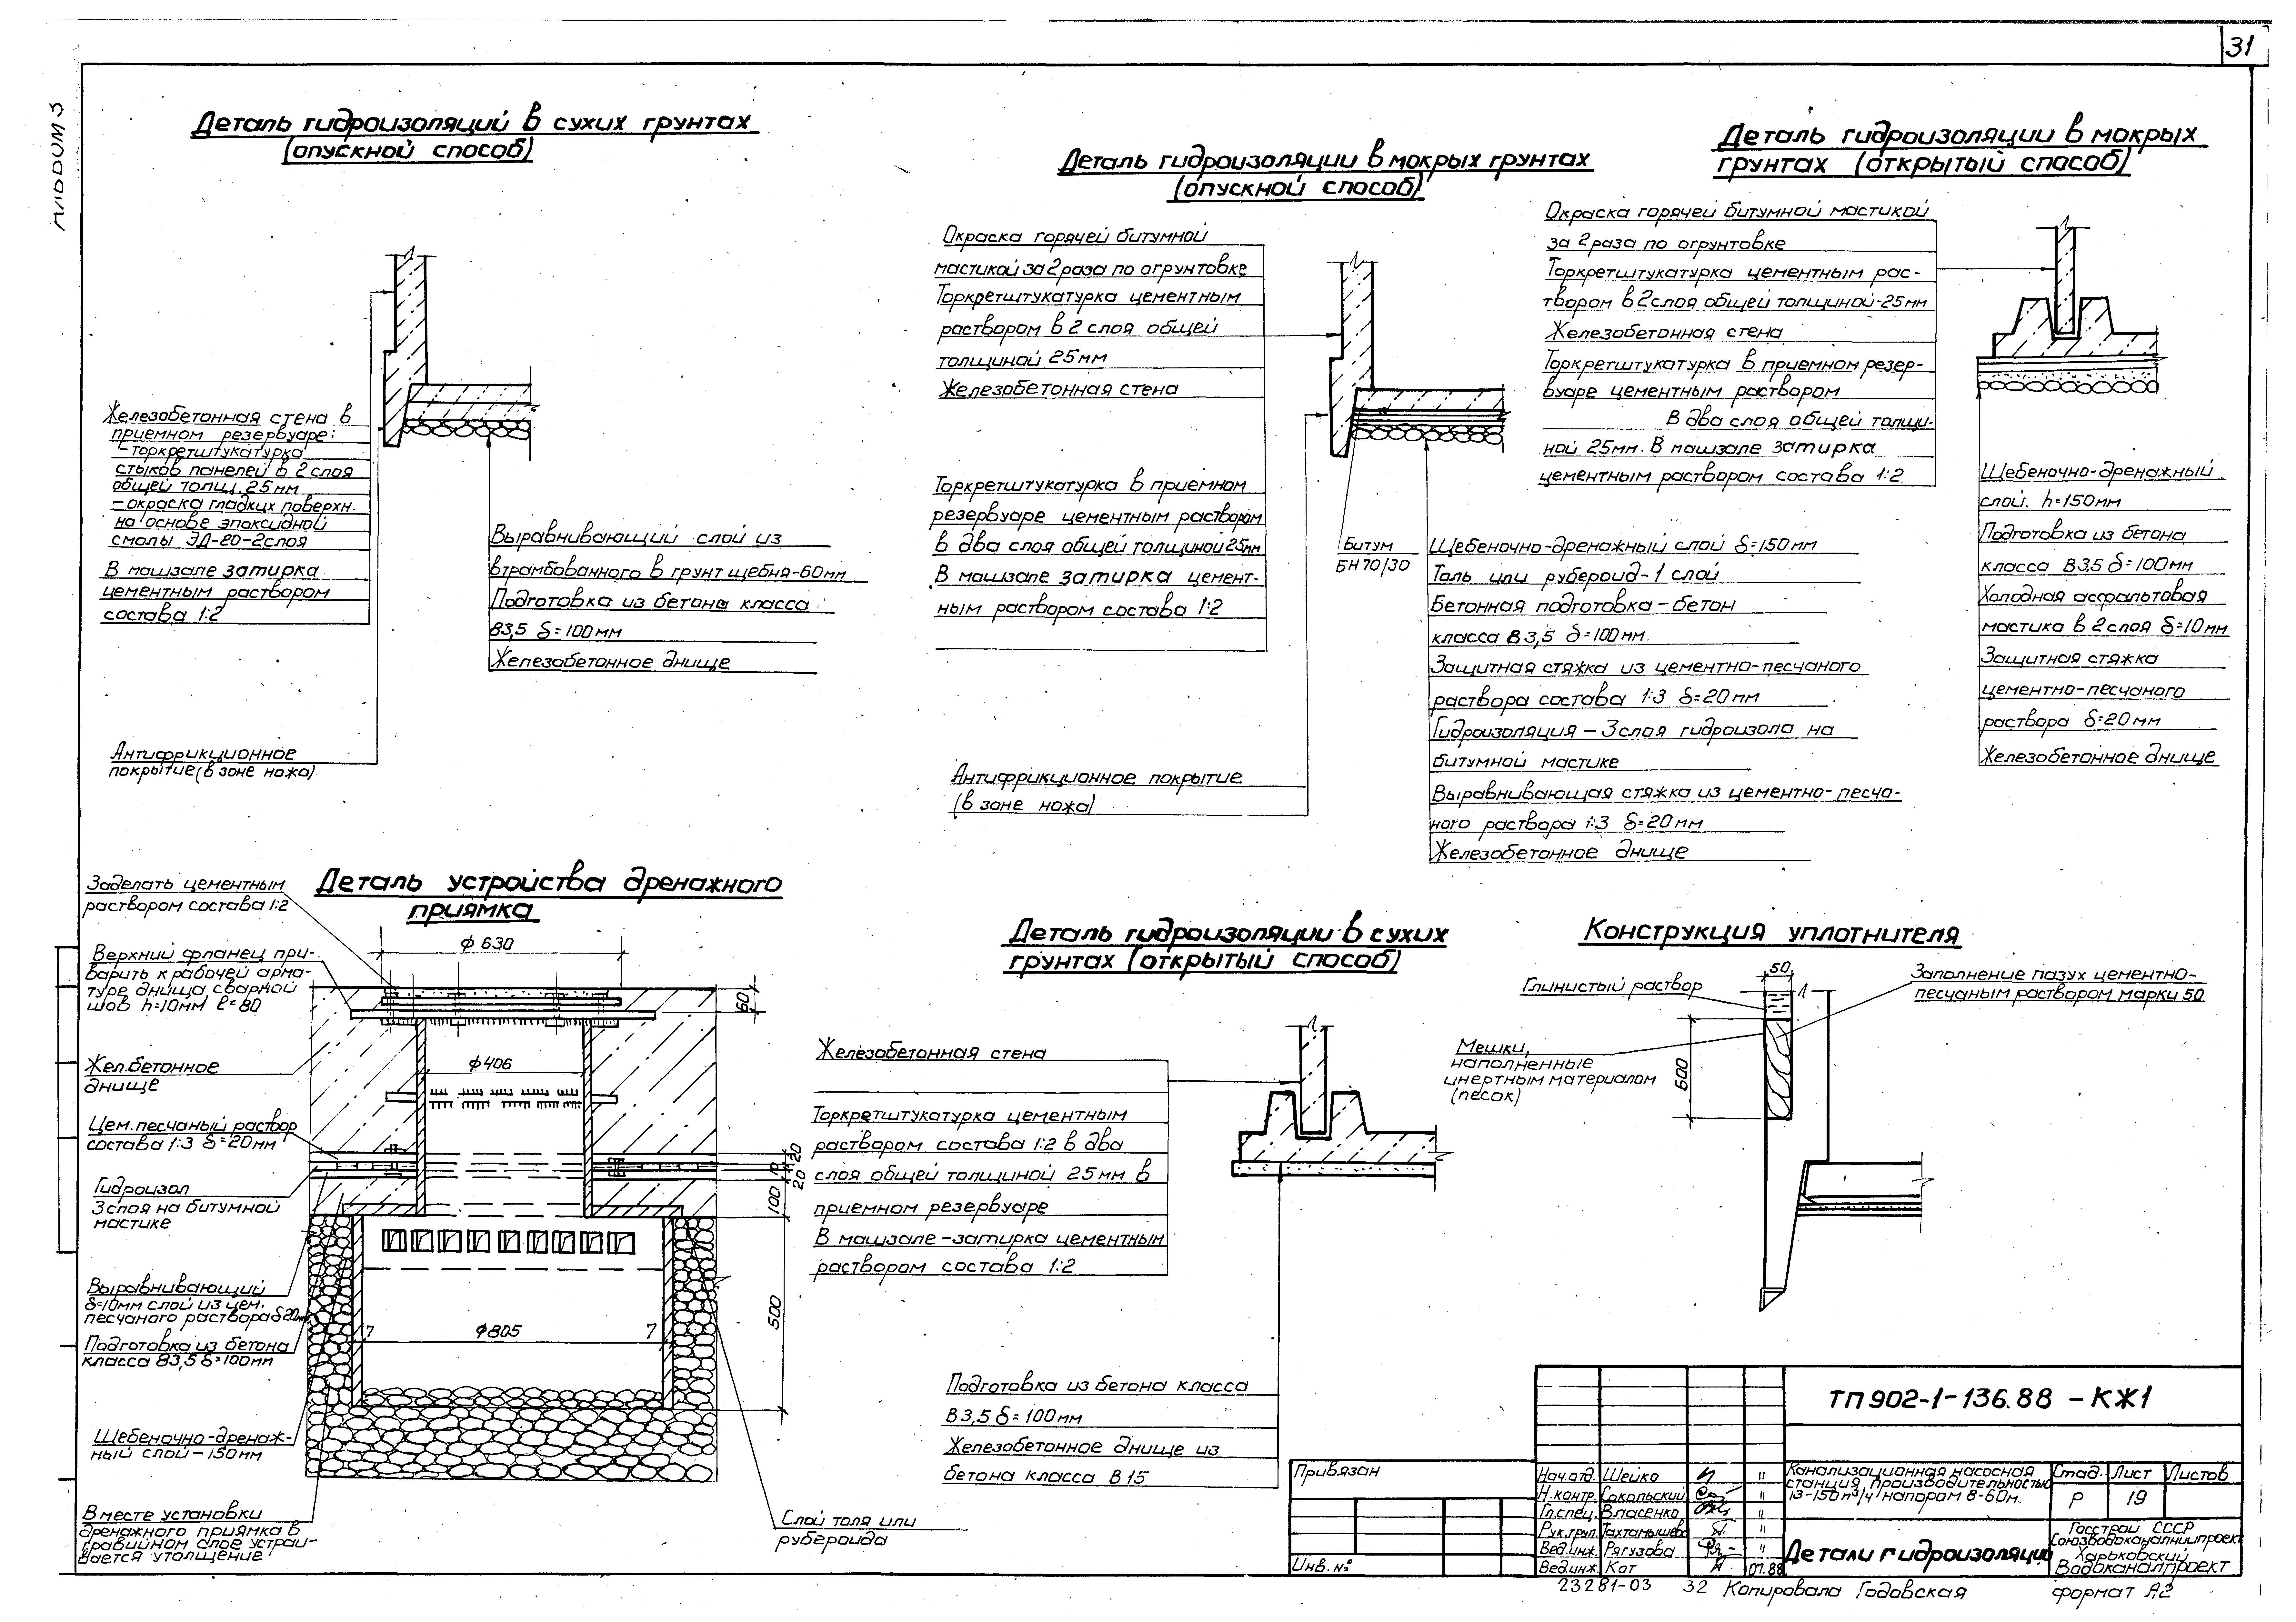 31
Альбом 3
Деталь гидроизоляций в сухих грунтах
(опускной способ)
Железобетонная стена в
приемном резервуаре:
-торкретштукатурка
стыков панелей в 2 слоя
общей толщ. 25мм
-окраска гладких поверхн.
на основе эпоксидной
смолы ЭД-20-2слоя
В машзале затирка
цементным раствором
состава 1:2
Выравнивающий слой из
втрамбованного в грунт щебня-60мм
Подготовка из бетона класса
В3,5 δ=100мм
Железобетонное днище
Антифрикционное
покрытие (в зоне ножа)
Деталь гидроизоляции в мокрых грунтах
(опускной способ)
Окраска горячей битумной
мастикой за 2 раза по огрунтовке
Торкретштукатурка цементным
раствором в 2 слоя общей
толщиной 25мм
Железобетонная стена
Торкретштукатурка в приемном
резервуаре цементным раствором
в два слоя общей толщиной 25мм
В машзале затирка цемент-
ным раствором состава 1:2
Антифрикционное покрытие
(в зоне ножа)
Битум
БН 70/30
Щебеночно-дренажный слой δ=150мм
Толь или рубероид-1 слой
Бетонная подготовка-бетон
класса В 3,5 δ=100мм.
Защитная стяжка из цементно-песчаного
раствора состава 1:3 δ=20мм
Гидроизоляция-3слоя гидроизола на
битумной мастике
Выравнивающая стяжка из цементно-песча-
ного раствора 1:3 δ=20мм
Железобетонное днище
Деталь гидроизоляции в мокрых
грунтах (открытый способ)
Окраска горячей битумной мастикой
за 2 раза по огрунтовке
Торкретштукатурка цементным рас-
твором в 2 слоя общей толщиной-25мм
Железобетонная стена
Торкретштукатурка в приемном резер-
вуаре цементным раствором
в два слоя общей толщи-
ной 25мм. В машзале затирка
цементным раствором состава 1:2
Щебеночно-дренажный
слой. h=150мм
Подготовка из бетона
класса В3,5 δ=100мм
Холодная асфальтовая
мастика в 2 слоя δ=10мм
Защитная стяжка
цементно-песчаного
раствора δ=20мм
Железобетонное днище
Деталь устройства дренажного
приямка
Заделать цементным
раствором состава 1:2
Верхний фланец при-
варить к рабочей арма-
туре днища сварной
шов h=10мм ℓ=80
Жел.бетонное
днище
Цем.песчаный раствор
состава 1:3 δ=20мм
Гидроизол
3слоя на битумной
мастике
Выравнивающий
δ=10мм слой из цем.
песчаного раствора δ20мм
Подготовка из бетона
класса В3,5 δ=100мм
Щебеночно-дренаж-
ный слой-150мм
Вместе установки
дренажного приямка в
гравийном слое устраи-
вается утолщение
ф 630
60
ф406
20
10
20
100
500
7
ф805
7
Слой толя или
рубероида
Деталь гидроизоляции в сухих
грунтах (открытый способ)
Железобетонная стена
Торкретштукатурка цементным
раствором состава 1:2 в два
слоя общей толщиной 25мм в
приемном резервуаре
В машзале-затирка цементным
раствором состава 1:2
Подготовка из бетона класса
В3,5 δ=100мм
Железобетонное днище из
бетона класса В 15
Конструкция уплотнителя
50
Глинистый раствор
Заполнение пазух цементно-
песчаным раствором марки 50
Мешки,
наполненные
инертным материалом
(песок)
600
Привязан
Инв. №
ТП 902-1-136.88 -КЖ1
Нач.отд. Шейко "
Н.контр. Сокольский "
Гл.спец. Власенко "
Рук.груп. Тахтамышева "
Вед.инж. Рягузова "
Вед.инж. Кот 07.88
Канализационная насосная
станция производительностью
13-150 м³/ч напором 8-60м.
Стад. Лист Листов
Р 19
Детали гидроизоляции
Госстрой СССР
Союзводоканалниипроект
Харьковский
Водоканалпроект
23281-03 32 Копировала Годовская формат А2